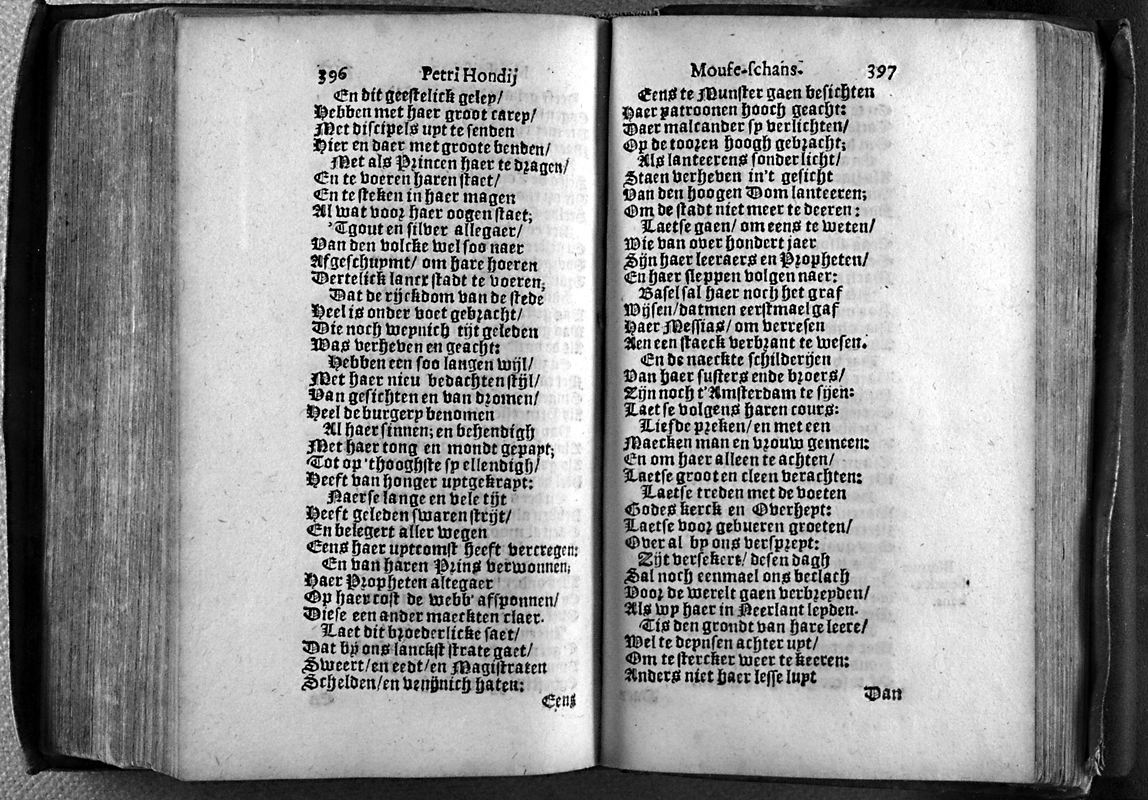 396 Petri Hondij
En dit geestelick geley/
Hebben met haer groot carey/
Met discipels uyt te senden
Hier en daer met groote benden/
Met als Princen haer te dragen/
En te voeren haren staet/
En te steken in haer magen
Al wat voor haer oogen staet;
'Tgout en silver allegaer/
Van den volcke wel soo naer
Afgeschuymt/ om hare hoeren
Dertelick lancx stadt te voeren;
Dat de rijckdom van de stede
Heel is onder voet gebracht/
Die noch weynich tijt geleden
Was verheven en geacht:
Hebben een soo langen wijl/
Met haer nieu bedachten stijl/
Van gesichten en van dromen/
Heel de burgery benomen
Al haer sinnen; en behendigh
Met haer tong en mondt gepayt;
Tot op 'thooghste sy ellendigh/
Heeft van honger uytgekrayt:
Naerse lange en vele tijt
Heeft geleden swaren strijt/
En belegert aller wegen
Eens haer uytcomst heeft vercregen:
En van haren Prins verwonnen;
Haer Propheten altegaer
Op haer cost de webb' afsponnen/
Diese een ander maeckten claer.
Laet dit broederlicke saet/
Dat by ons lanckst strate gaet/
Sweert/ en eedt/ en Magistraten
Schelden/ en venijnich haten:
Eens
Moufe-schans. 397
Eens te Munster gaen besichten
Haer patroonen hooch geacht:
Daer malcander sy verlichten/
Op de tooren hoogh gebracht;
Als lanteerens sonder licht/
Staen verheven in't gesicht
Van den hoogen Dom lanteeren;
Om de stadt niet meer te deeren:
Laetse gaen/ om eens te weten/
Wie van over hondert jaer
Sijn haer leeraers en Propheten/
En haer sleppen volgen naer:
Basel sal haer noch het graf
Wijsen/ datmen eerstmael gaf
Haer Messias/ om verresen
Aen een staeck verbrant te wesen.
En de naeckte schilderijen
Van haer susters ende broers/
Zijn noch t'Amsterdam te sijen:
Laetse volgens haren cours:
Liefde preken/ en met een
Maecken man en vrouw gemeen:
En om haer alleen te achten/
Laetse groot en cleen verachten:
Laetse treden met de voeten
Godes kerck en Overheyt:
Laetse voor gebueren groeten/
Over al by ons verspreyt:
Zijt versekert/ desen dagh
Sal noch eenmael ons beclach
Voor de werelt gaen verbreyden/
Als wy haer in Neerlant leyden.
Tis den grondt van hare leere/
Wel te deynsen achter uyt/
Om te stercker weer te keeren:
Anders niet haer lesse luyt
Dan